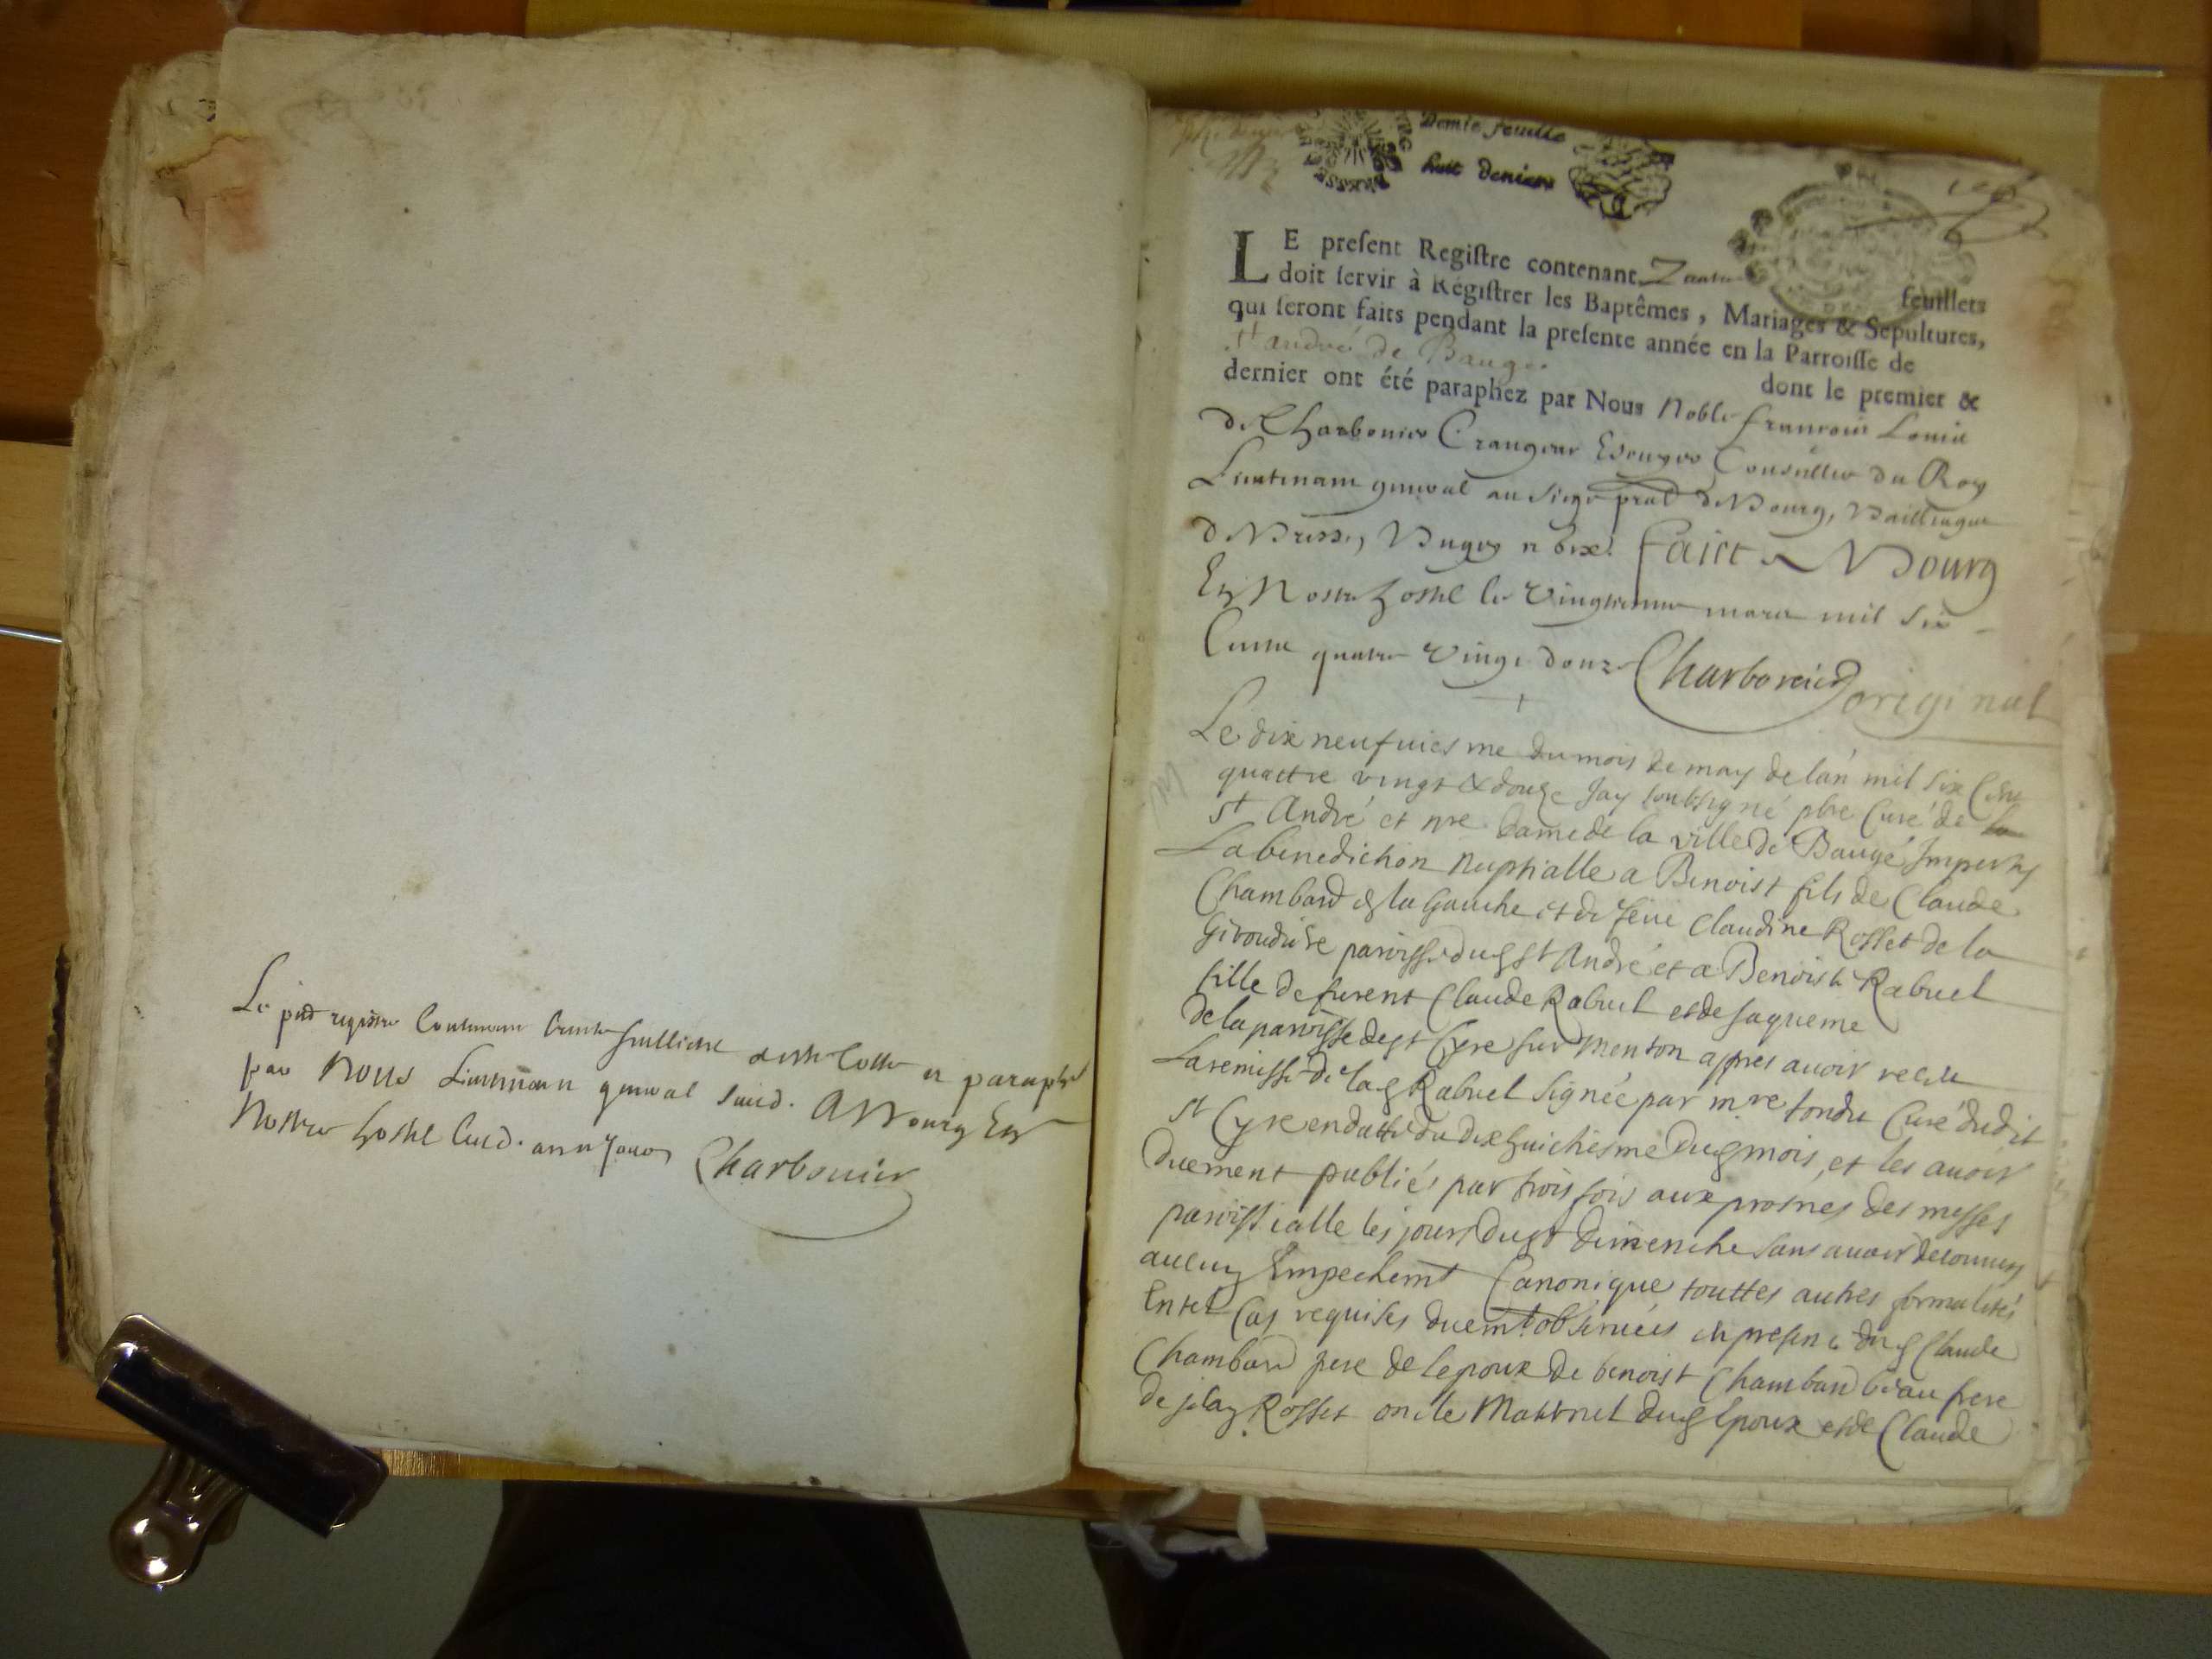 Le pnt registre contenant trente feuillets a este cotte et paraphé
par Nous Lieutenant general susd. A Bourg En
Nostre hostel lesd. an et jour Charbonier
Demie feuille
huit deniers
LE present Registre contenant feuillets
doit servir à Régistrer les Baptêmes, Mariages & Sepultures,
qui seront faits pendant la presente année en la Parroisse de
st andré de Baugé dont le premier &
dernier ont été paraphez par Nous Noble francois Louis
de Charbonier Crangeac Escuyer Conseiller du Roy
Lieutenant general au siege pral de Bourg, Bailliage
de Bresse, Bugey Faict a Bourg
En Nostre hostel le mars mil six
Cents quatre vingt douze Charbonier original
Le dix neufuiesme du mois de may de lan mil six Cent
quattre vingt & douze Jay soubsigné pbre Curé de
st André et nre dame de la ville de Baugé Imparty
La benediction nuptialle a Benoist fils de Claude
Chambard et de feüe Claudine Rosset de la
paroisse dud st André et a Benoiste Rabuel
fille de furent Claude Rabuel et de Jaqueme
de la paroisse de st Cyre sur menton appres auoir receu
La remisse de lad Rabuel signée par mre tondu Curé dudit
st Cyre en datte du dix huictiesme dud mois, et les auoir
duement publiés par trois fois aux prosnes des messes
paroissialle les jours dust dimenche sans auoir decouuert
aucun Empechemt Canonique touttes autres formalités
En tel Cas requises duemt obseruées en presence dud Claude
Chambard pere de lepoux de benoist Chambard beau frere
de Rosset oncle Maternel dud Epoux et de Claude